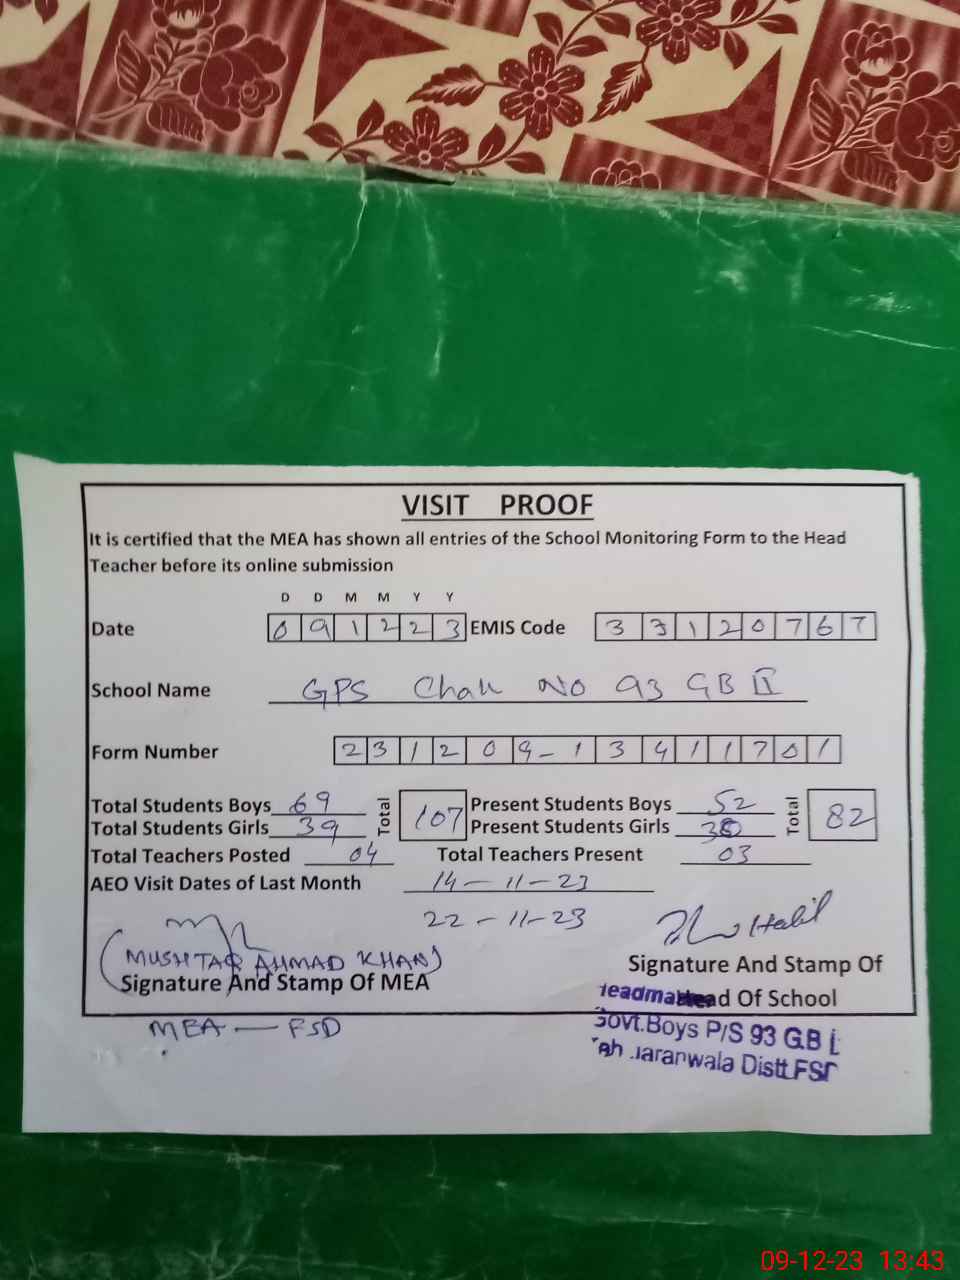 VISIT PROOF
It is certified that the MEA has shown all entries of the School Monitoring Form to the Head
Teacher before its online submission
D D M M Y Y
Date 0 9 1 2 2 3 EMIS Code 3 3 1 2 0 7 6 7
School Name GPS Chak No 93 GB II
Form Number 2 3 1 2 0 9 - 1 3 4 1 1 7 0 1
Total Students Boys 69 Total 107 Present Students Boys 52 Total 82
Total Students Girls 39 Present Students Girls
Total Teachers Posted 04 Total Teachers Present 03
AEO Visit Dates of Last Month 14-11-23
22-11-23
(MUSHTAQ AHMAD KHAN)
Signature And Stamp Of MEA
MEA - FSD
Signature And Stamp Of
Head Of School
Govt.Boys P/S 93 G.B
Jaranwala Distt.FSD
09-12-23 13:43